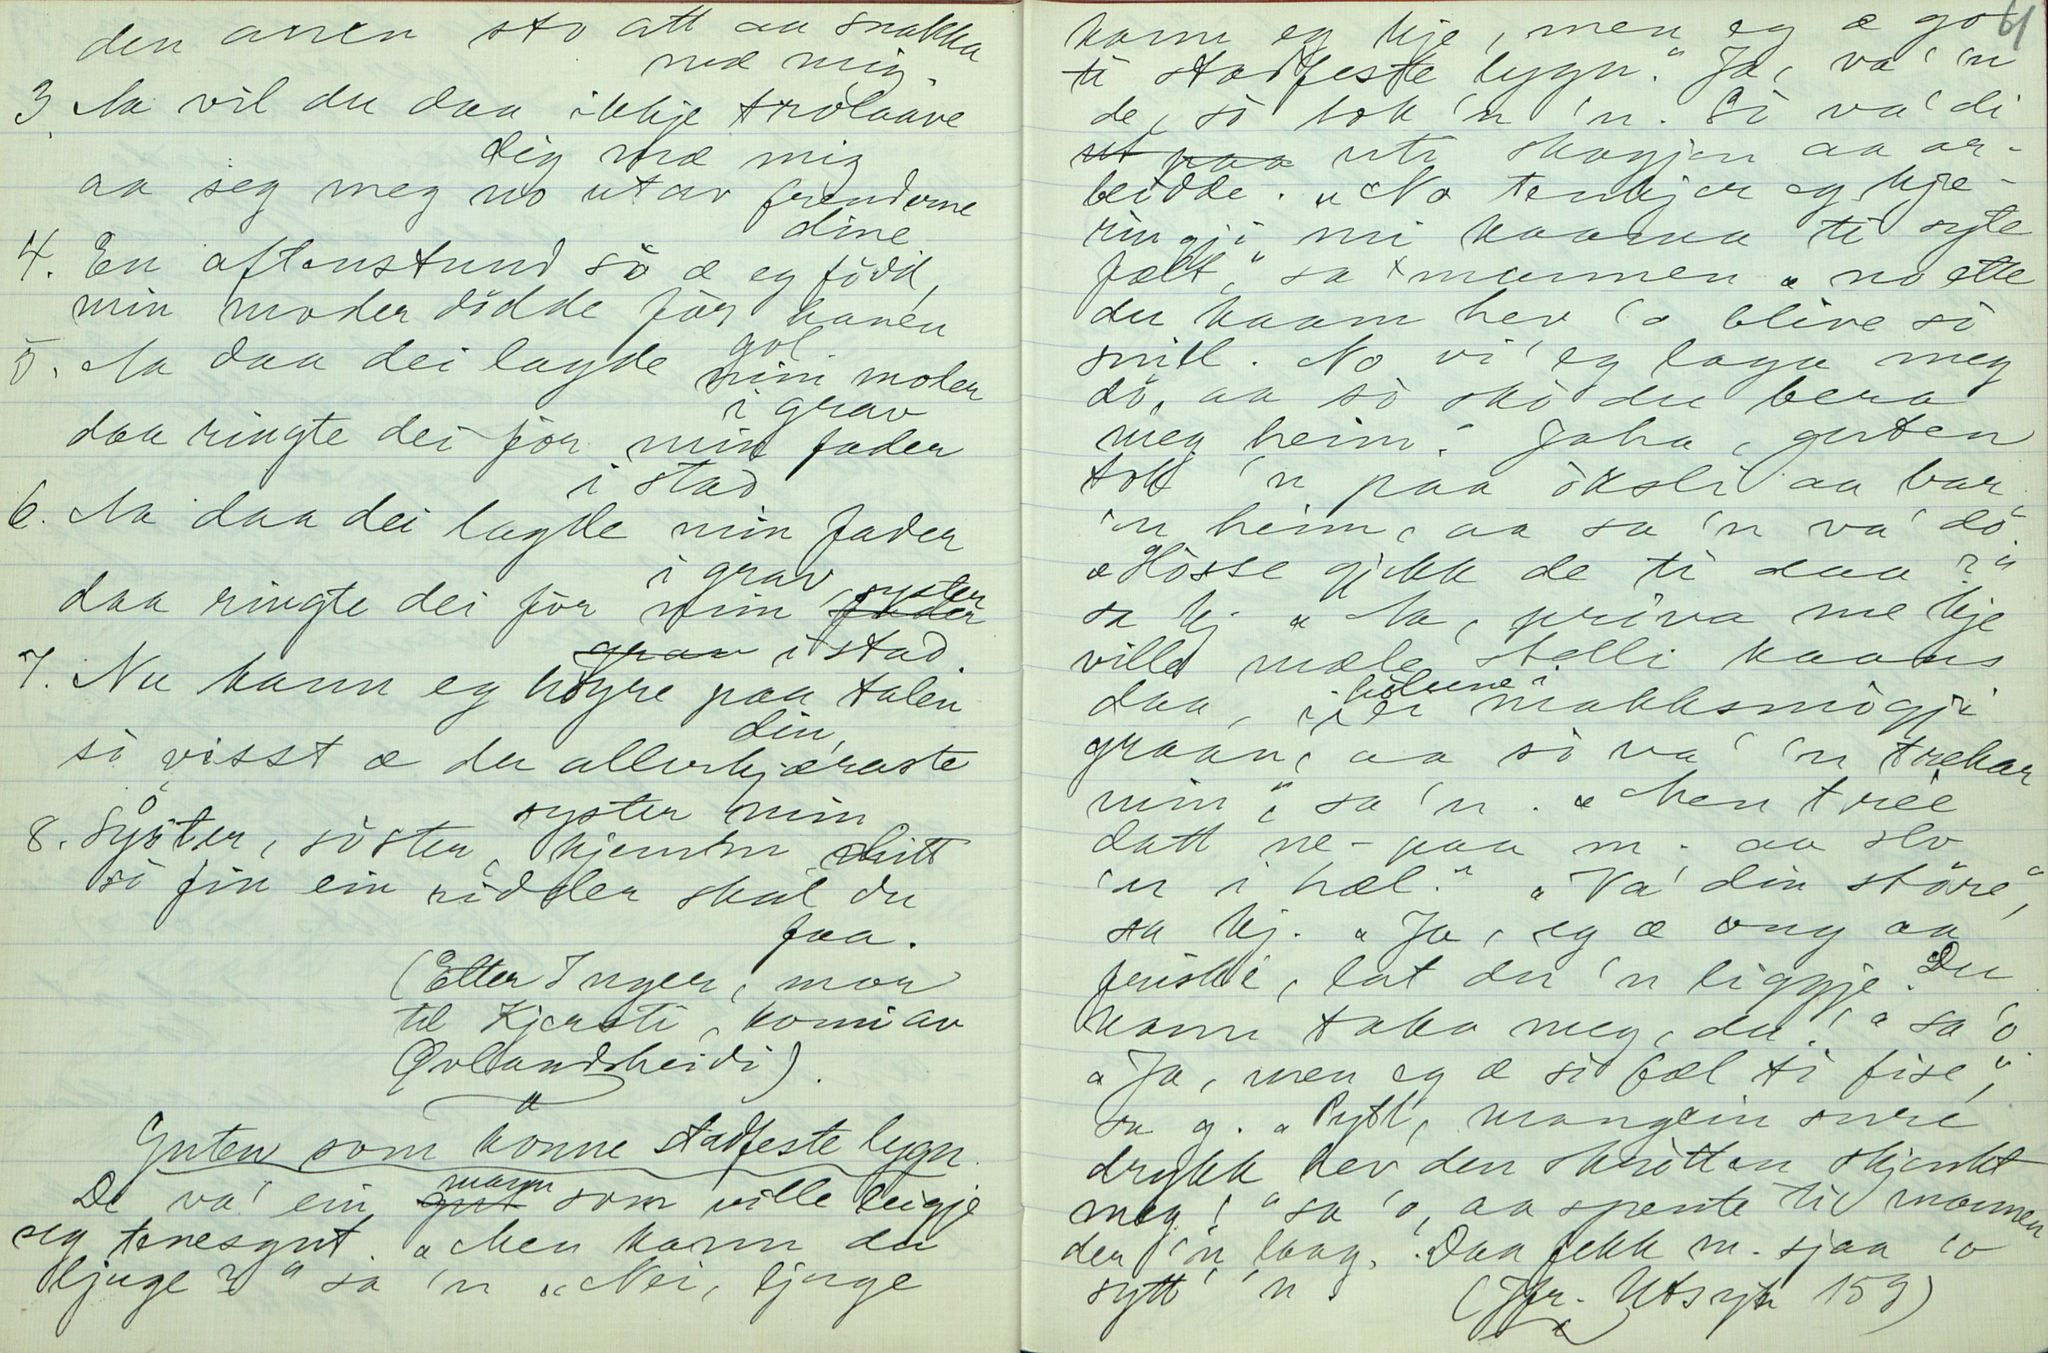 den anen sto att aa snakka
mæ mig.
3. Aa vil du daa ikkje trolaave
dig mæ mig
aa seg meg no utav frendvne
dine
4. En aftenstund sò æ eg fødd,
min moder dödde för hanen
gol
5. Aa daa dei lagde min moder
i grav
daa ringte dei för min fader
i stad
6. Aa daa dei lagde min fader
i grav
daa ringte dei för min fader syster
grav i stad.
7. Nu kann eg høyre paa talen
din,
sò visst æ du allerkjæraste
syster min
8. Syster, söster, kjemm ditt
sò fin ein ridder skal du
faa.
(Etter Inger, mor
til Kjersti, komi av
Øvlandsheidi).
Guten som konne stadfeste lygn.
De va' ein gut mann som ville leigje
seg tenesgut. „Men kann du
ljuge?" sa 'n „Nei, ljuge
61
kann eg kje, men eg æ go
ti stadfeste lygn." Ja, va' 'n
de, sò tok 'n 'n. Sò va' di
ut paa uti skogjen aa ar-
beidde. „No tenkjer eg kje-
ringji mi kaama ti syte
fælt," sa mannen „no ette
du kaam hev 'o blive sò
snill. No vi' eg laga meg
dö, aa sò skò du bera
meg heim." Jaha, guten
tok 'n paa öksli aa bar
'n heim, aa sa 'n va' dö.
„Hòsse gjekk de ti daa?"
sa kj. „Aa, priva me kje
ville mæle stelli kaans
daa, i ei holune i makksmògji
graan, aa sò va' 'n trekar
min," sa 'n. „Men trèe
datt ne-paa m. aa slo
'n i hæl." „Va' din störe",
sa kj. „Ja, eg æ ong aa
friski, lat du 'n liggje. Du
kann taka meg, du!" sa 'o.
„Ja, men eg æ sò fæl ti fise",
sa g. „Pytt, mangein sure
drykk hev den skròtten skjenkt
meg!" sa 'o, aa spente til mannen
der 'n laag. Daa fekk m. sjaa 'o
sytt 'n.
(Jfr. Utsyn 159)